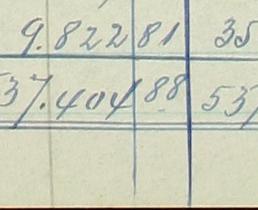 9.822 81 35
537.404 88 537